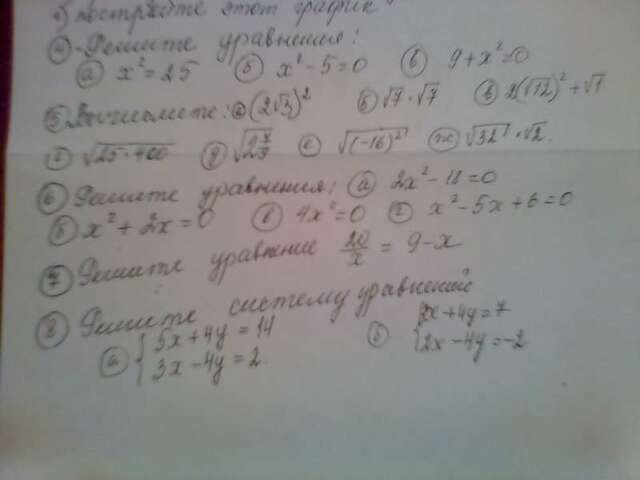 постройте этот график
④ Решите уравнения:
а) x² = 25 б) x² - 5 = 0 в) 9 + x² = 0
⑤ Вычислите: а) (2√3)² б) √7 · √7 в) 2(√12)² + √1
г) √25·400 д) е) √(-16)² ж) √32 · √2.
⑥ Решите уравнения: а) 2x² - 18 = 0
б) x² + 2x = 0 в) 4x² = 0 г) x² - 5x + 6 = 0
⑦ Решите уравнение 20/x = 9 - x
⑧ Решите систему уравнений
а) { 5x + 4y = 14 б) { x + 4y = 7
3x - 4y = 2. 2x - 4y = -2